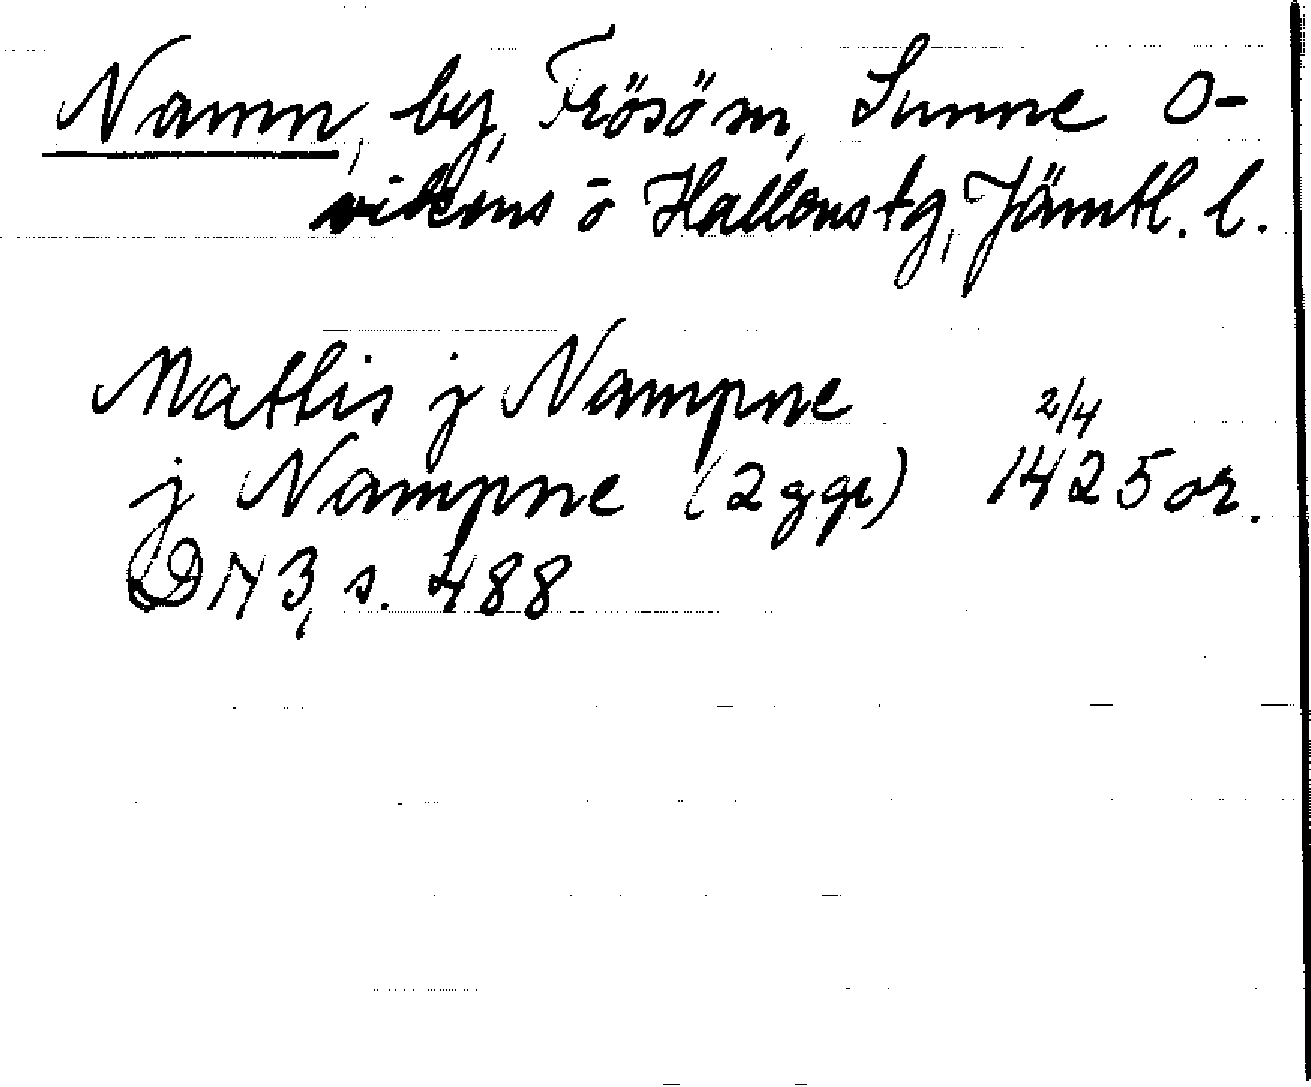 Namn, by, Frösön, Sunne O-
vikens o Hallens tg, Jämtl. l.
Mattis j Nampne
j Nampne (2 ggr) 2/4 1425 or.
DN 3, s. 488